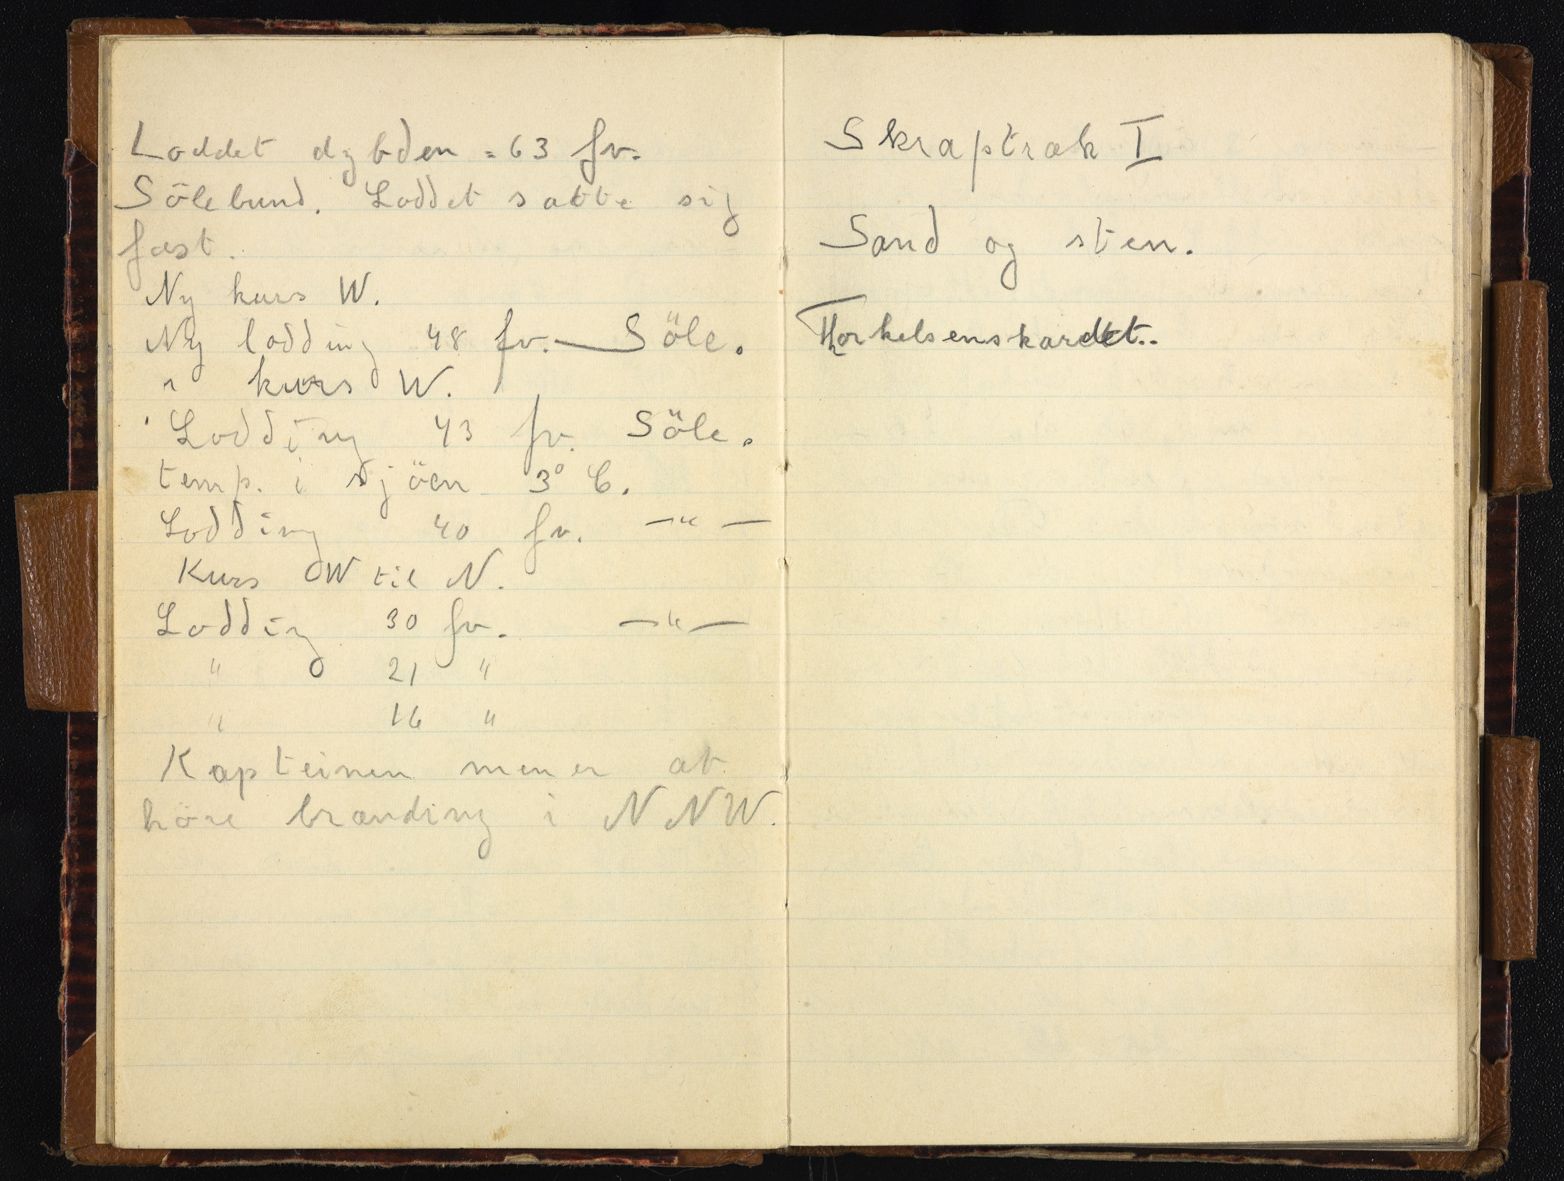 Loddet dybden = 63 fv.
Sölebund. Loddet satte sig
fast.
Ny kurs W.
Ny lodding 48 fv. — Söle.
" kurs W.
Lodding 43 fv. Söle.
temp. i sjöen 3° C.
Lodding 40 fv. — " —
Kurs W til N.
Lodding 30 fv. — " —
" 21 "
" 16 "
Kapteinen mener at
höre brænding i NNW.
Skraptræk I
Sand og sten.
Thorkelsenskardet..